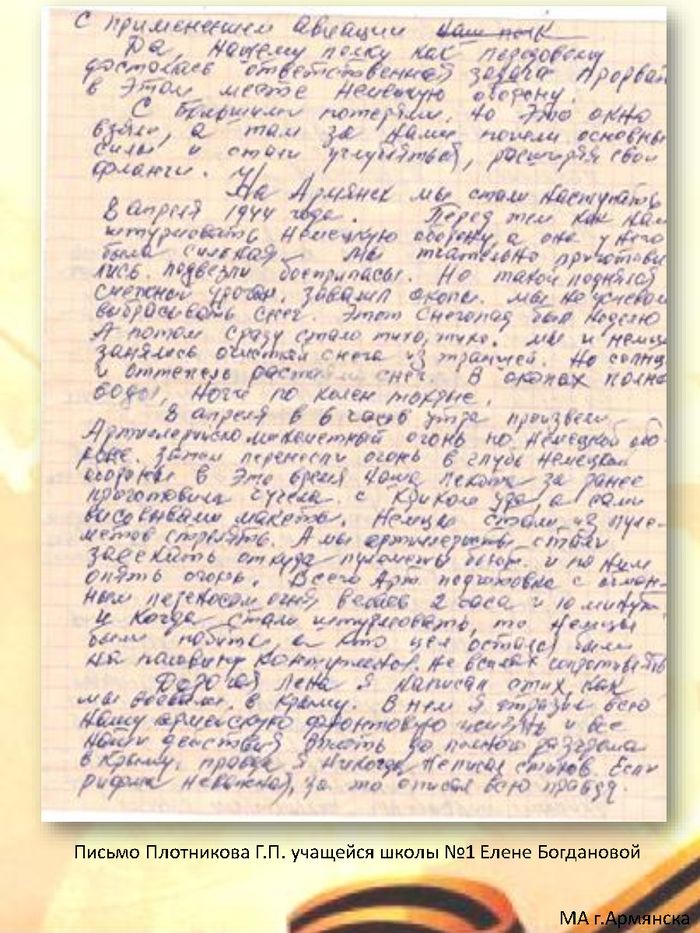 С применением авиации наш полк
Да, нашему полку как передовому
досталась ответственная задача прорвать
в этом месте немецкую оборону.
С большими потерями, но это окно
взяли, а там за нами пошли основные
силы и стали углубляться, расширяя свои
фланги.
На Армянск мы стали наступать
8 апреля 1944 года. Перед тем как нам
штурмовать немецкую оборону, а она у него
была сильная мы тщательно приготови
лись. подвезли боеприпасы. Но такой поднялся
снежной ураган, завалил окопы. мы не успевали
выбрасывать снег. Этот снегопад был неделю
А потом сразу стало тихо, тихо. мы и немцы
занялись очисткой снега из траншей. Но солнце
и оттепель растаял снег. В окопах полно
воды, ноги по колен мокрые.
8 апреля в 6 часов утра произвели
огонь по немецкой обо-
роне. Затем переносли огонь в глубь немецкой
обороны в это время наша пехота за ранее
приготовила чучела с криком ура, а сами
высовывали макеты. Немцы стали из пуле-
метов стрелять. А мы артиллеристы стали
засекать откуда пулеметы бьют и по ним
опять огонь. Всего Арт. подготовка с обман-
ным переносом огня велась 2 часа и 10 минут.
и когда стали штурмовать, то немцы
были побиты а кто цел остался были
на половину контужены. не в силах
Дорогая Лена я написал стих, как
мы воевали, в Крыму. В нем я отразил всю
нашу армейскую фронтовую жизнь и все
наши действия вплоть до полного разгрома
в Крыму. правда я никогда не писал стихов. Если
рифма неважная, за то описал всю правду.
Письмо Плотникова Г.П. учащейся школы №1 Елене Богдановой
МА г.Армянска